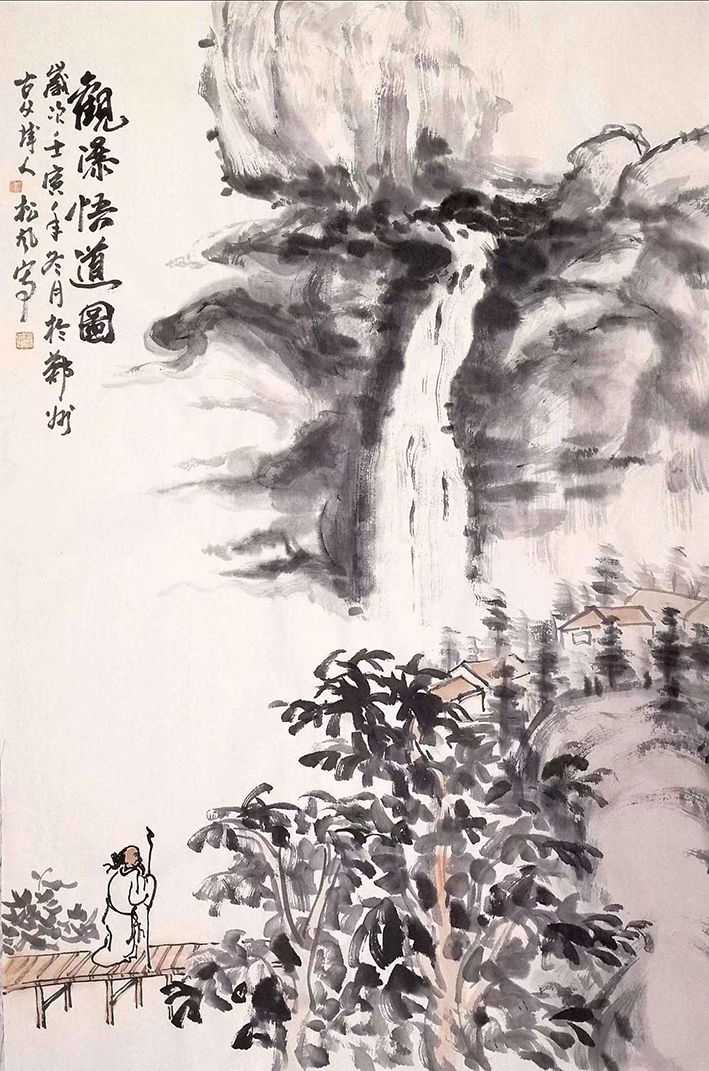 觀瀑悟道圖
歲次壬寅年冬月於鄭州
古陳人松風寫